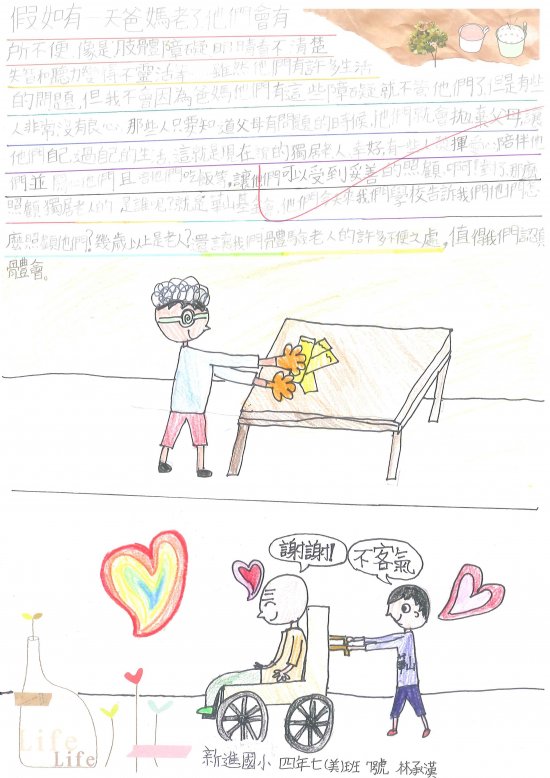 假如有一天爸媽老了他們會有
所不便,像是肢體障礙眼睛看不清楚
失智和聽力變得不靈活等。雖然他們有許多生活
的問題,但我不會因為爸媽他們有這些障礙就不管他們了,但是有些
人非常沒有良心,那些人只要知道父母有問題的時候,他們就會拋棄父母,讓
他們自己過自己的生活,這就是現在的獨居老人,幸好有一些人發揮愛心陪伴他
們並關心他們且有他們吃飯等,讓他們可以受到妥善的照顧,
照顧獨居老人的是誰呢?就是華山基金會,他們今天來我們學校告訴我們他們怎
麼照顧他們?幾歲以上是老人?還讓我們體驗老人的許多不便之處,值得我們認真
體會。
謝謝!!
不客氣
Life
Life
新進國小 四年七(美)班 號 林承漢